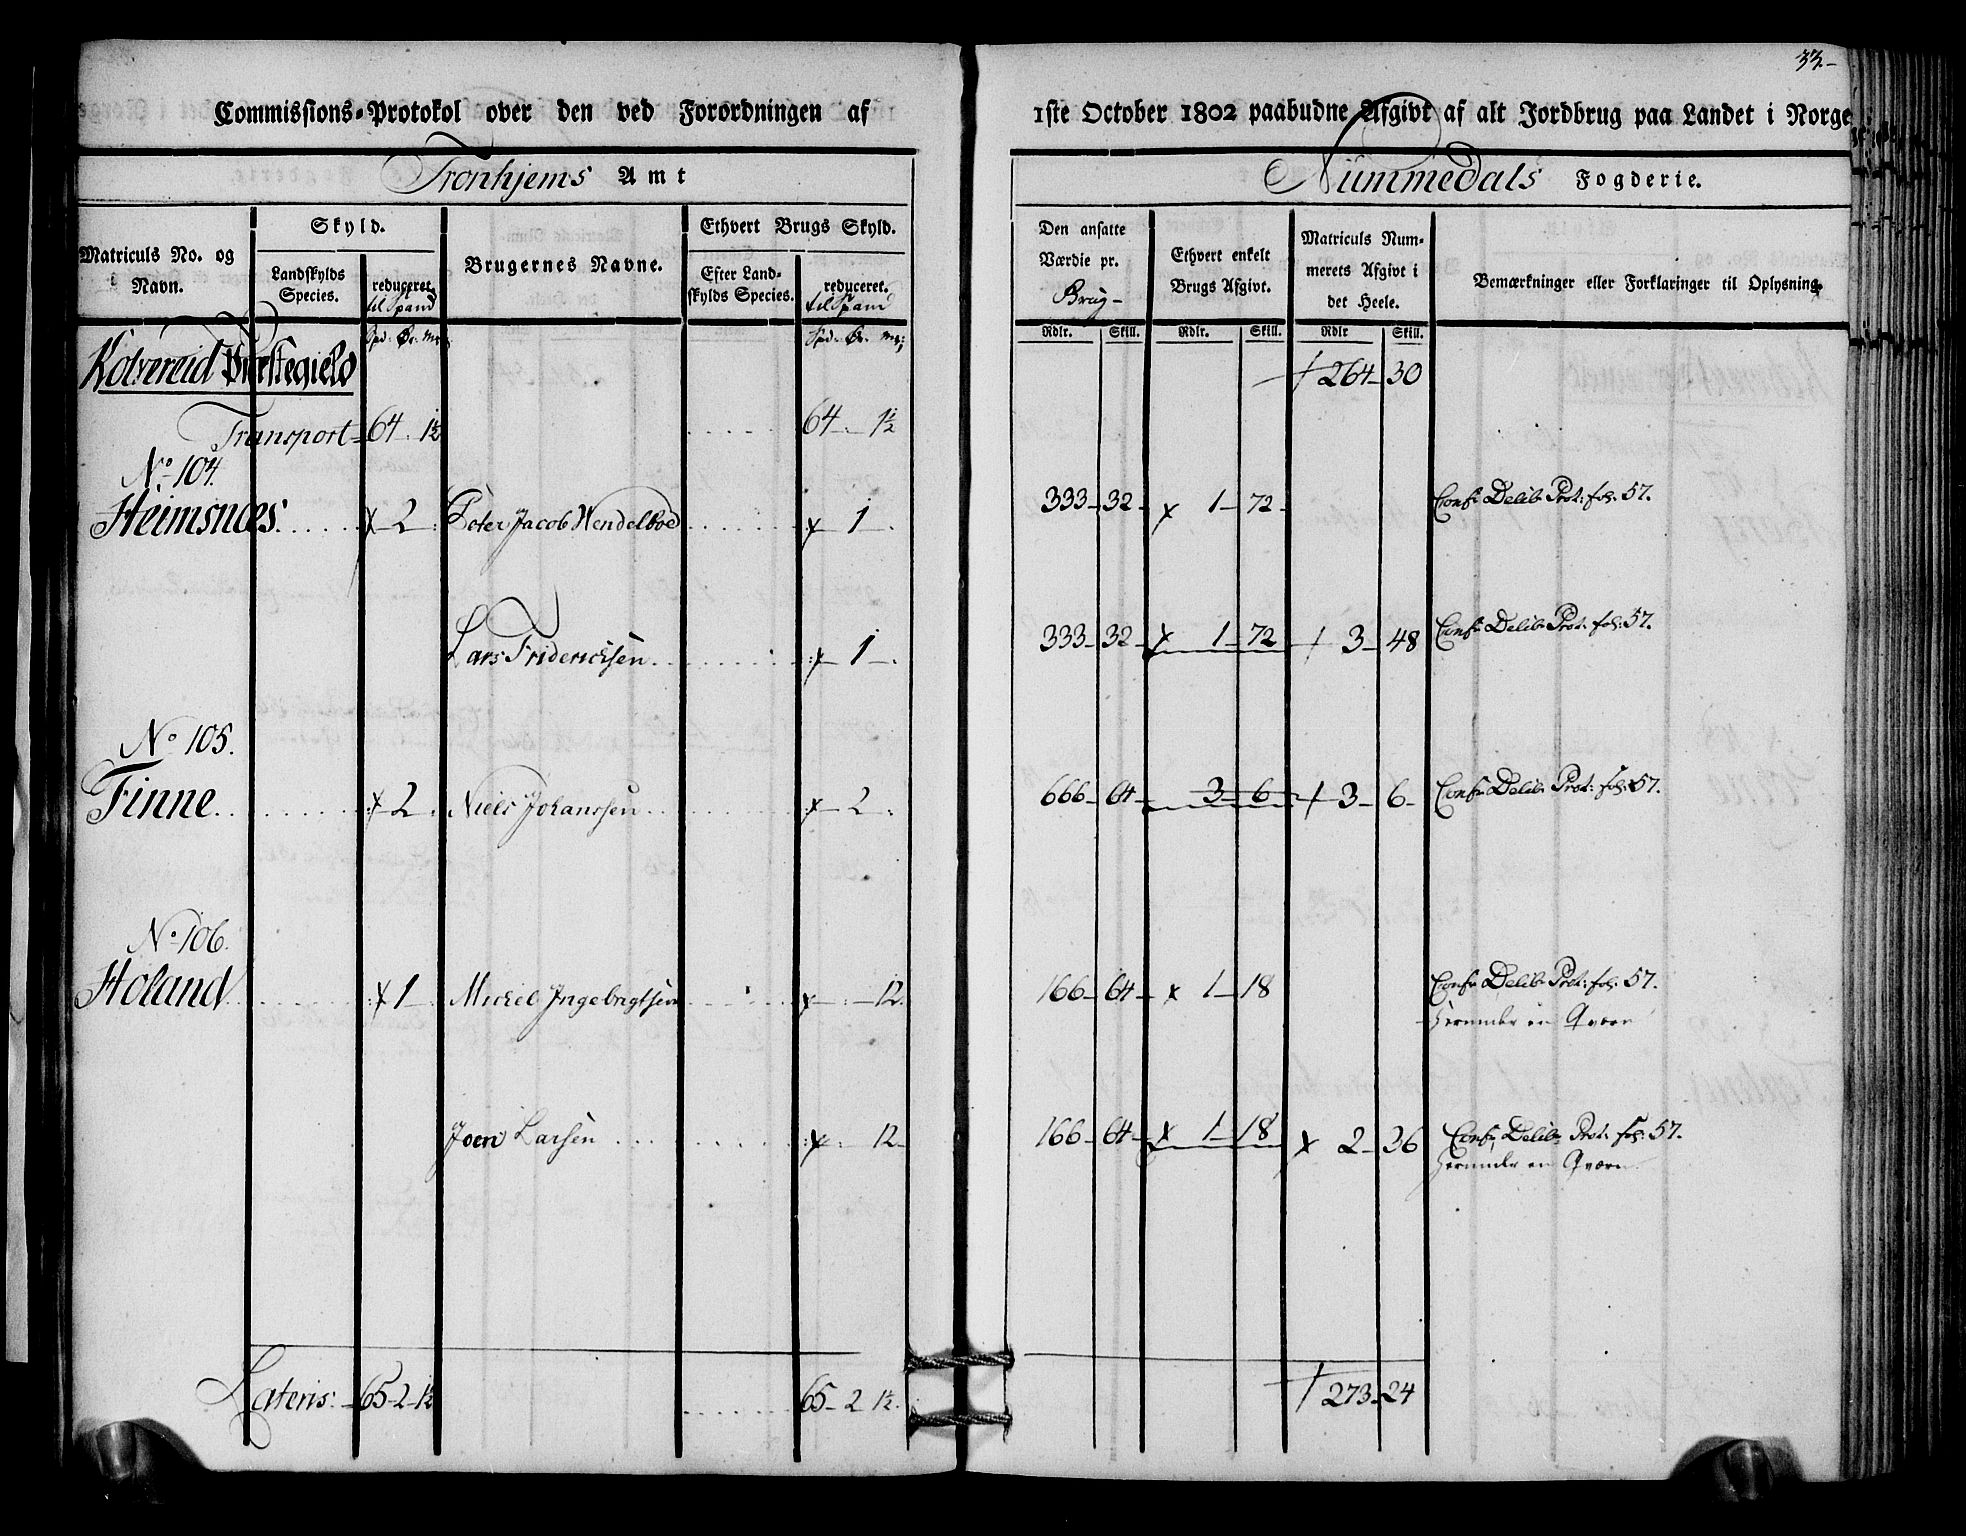 33.-
Commissions-Protokol over den ved Forordningen af 1ste October 1802 paabudne Afgivt af alt Jordbrug paa Landet i Norge
Tronhjems Amt
Nummedals Fogderie.
Matriculs No. og Navn.
Skyld.
Landskylds Species.
reduceret til Spand
Brugernes Navne.
Ethvert Brugs Skyld.
Efter Landskylds Species.
reduceret til Spand
Den ansatte Værdie pr. Brug-
Ethvert enkelt Brugs Afgivt.
Matriculs Nummerets Afgivt i det Heele.
Bemærkninger eller Forklaringer til Oplysning.
Spd: Ør: Mr: Spd: Ør: Mr:
Rdlr. Skill. Rdlr. Skill. Rdlr Skill.
Kolvereid Præstegield 264-30
Transport= 64. 1½ 64-. 1½
No 104.
Heimsnæs. 2. Peter Jacob Hendelboe 1. 333-32- 1-72- Conf: Delib: Prot: fol: 57.
Lars Friderichsen 1. 333-32- 1-72 3-48 Conf: Delib: Prot: fol: 57.
No 105.
Finne. 2. Niels Johanssen 2. 666-64- 3-6 3-6- Conf: Delib: Prot: fol: 57.
No 106.
Holand 1. Michel Ingebrigtsen 12. 166-64- 1-18 Conf: Delib: Prot: fol: 57.
herunder en Qværn
Joen Larsen 12- 166-64- 1-18 2-36 Conf: Delib: Prot: fol: 57.
herunder en Qværn
Lateris: 65-2-1½ 65-2 1½. 273-24